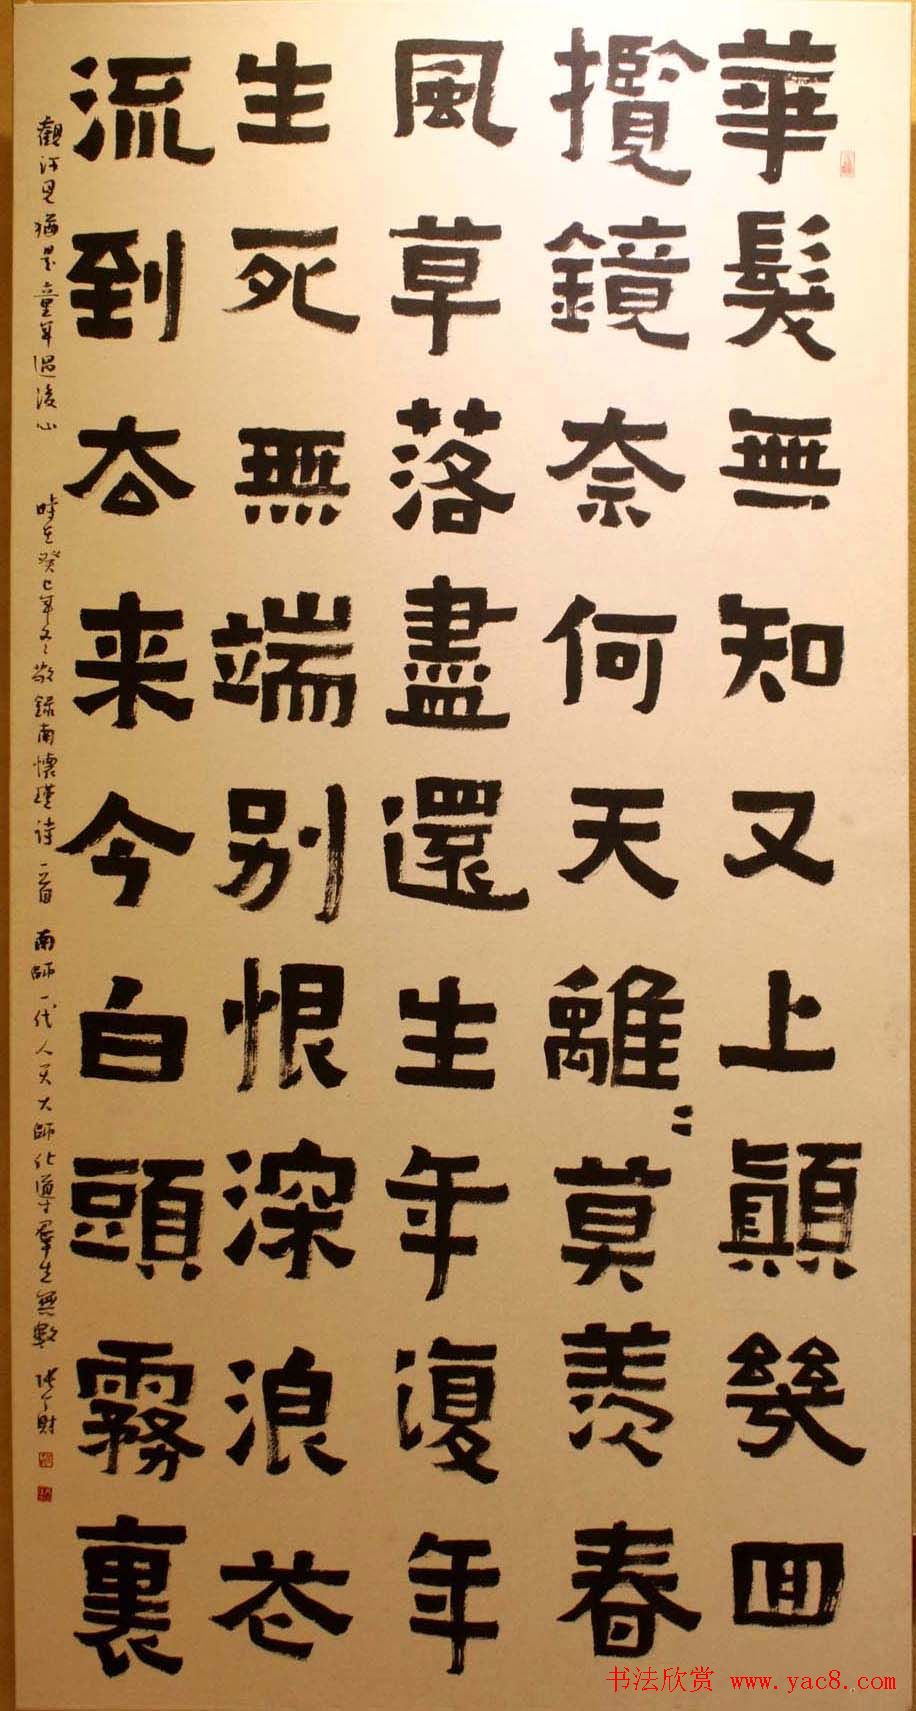 華髮無知又上顛幾回
攬鏡奈何天離〻莫羨春
風草落盡還生年復年
生死無端別恨深浪花
流到去来今白頭霧裏
觀河見猶是童年過後心 時在癸巳年冬敬録南懷瑾詩一首 南師一代人天大師化導羣生無數
书法欣赏 www.yac8.com